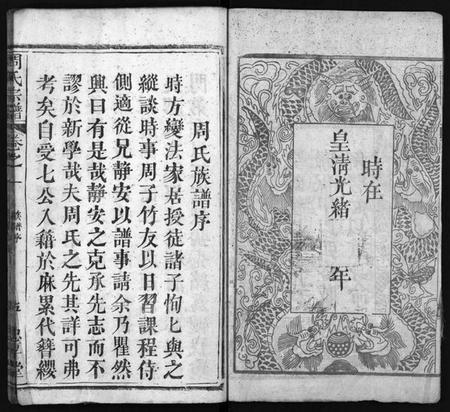 時在
皇清光緒　年
周氏族譜序
時方變法家居授徒諸子恂恂與之
縱談時事周子竹友以日習課程侍
側適從兄靜安以譜事請余乃瞿然
興曰有是哉靜安之克承先志而不
謬於新學哉夫周氏之先其詳可弗
考矣自受七公入籍於麻累代簪纓
周氏宗譜
卷之一
族譜序
堂